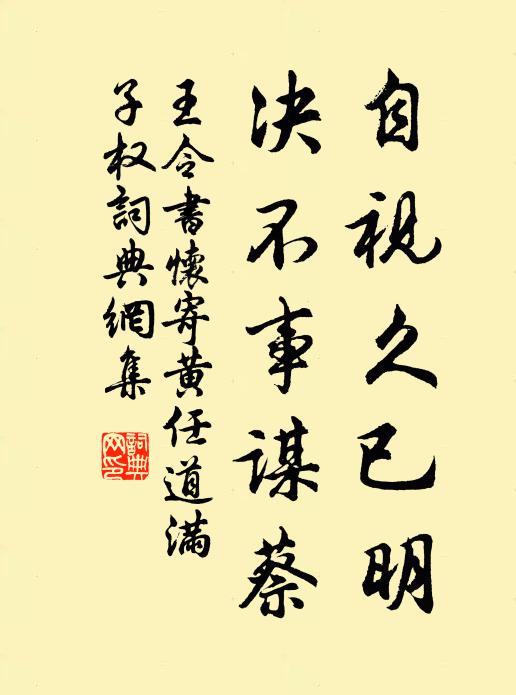 自视久已明
决不事谋蔡
王令書懷寄黄任道滿
子权詞典網集
詞典網印